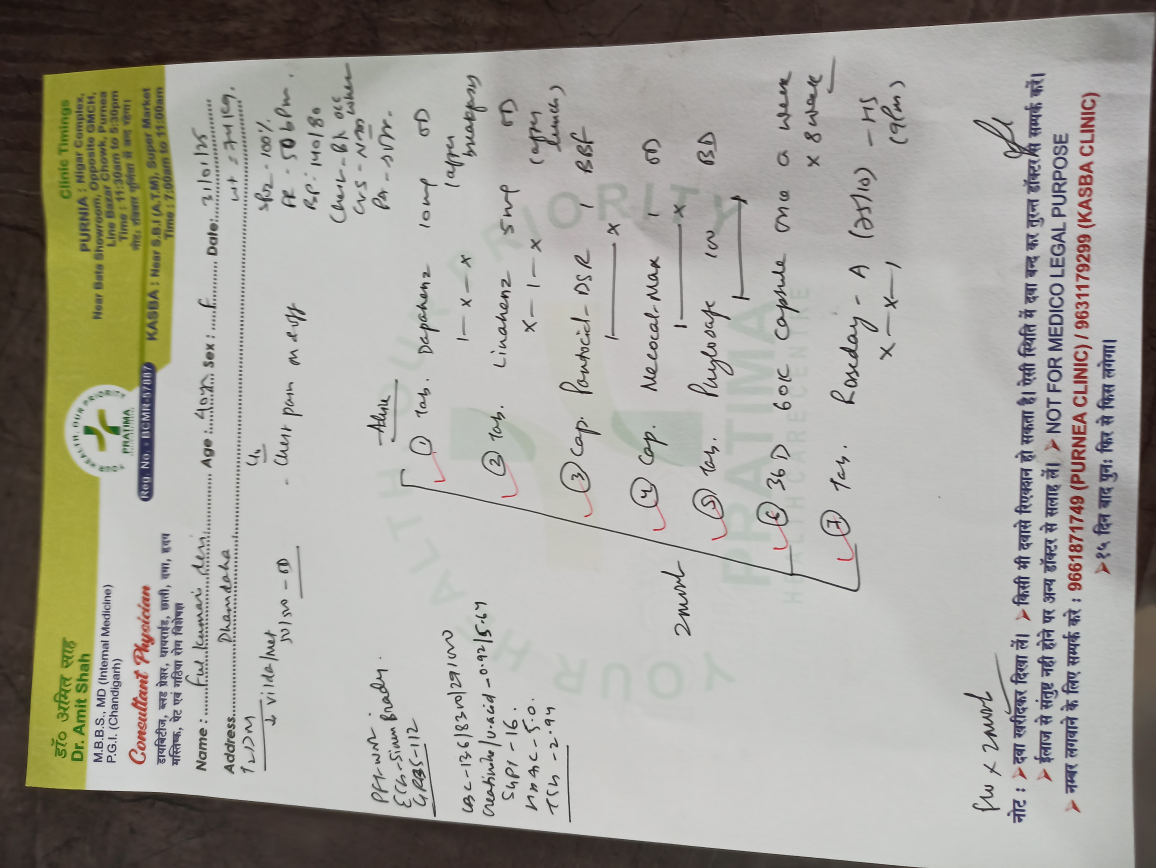 डॉ० अमित साह
Dr. Amit Shah
M.B.B.S., MD (Internal Medicine)
P.G.I. (Chandigarh)
Consultant Physician
डायबिटीज, ब्लड प्रेशर, थायराईड, छाती, दमा, हृदय
मस्तिष्क, पेट एवं गठिया रोग विशेषज्ञ
YOUR HEALTH, OUR PRIORITY
PRATIMA
Reg. No. - BCMR-57887
Clinic Timings
PURNIA : Nigar Complex,
Near Bata Showroom, Opposite GMCH,
Line Bazar Chowk, Purnea
Time : 11:30am to 5:30pm
KASBA : Near S.B.I (A.T.M), Super Market
Time : 7:00am to 11:00am
Name : Ful kumari devi Age : 40 Sex : F Date:
Address Dhamdaha
wt = 74 kg.
T2DM
↓ vilda/met
50/500 - OD
c/o
- Chest pain on off
SPO2 - 100%
PR - 50 bpm.
BP: 140/80
CVS -
PA - soft.
ECG - Sinus Brady.
GRBS - 112
CBC - 13.6/8300/291000
Creatinine/U.acid - 0.92/5.64
SGPT - 16.
HbA1C - 5.0.
TSH - 2.94
Advice
① Tab. Dapahenz 10mg OD
1 — x — x (after breakfast)
② Tab. Linahenz 5mg OD
x — 1 — x (after lunch)
③ Cap. Pantocid-DSR 1 BBF
1 — x
④ Cap. Mecocal-Max 1 OD
1 — x
⑤ Tab. 100 BD
1 — 1
⑥ 36D 60K capsule once a week
x 8 week
⑦ Tab. Roseday - A (25/10) - HS
x — x — 1 (9pm)
2 month
F/U x 2 month
YOUR HEALTH OUR PRIORITY
PRATIMA
HEALTHCARE CENTRE
नोट : ➤ दवा खरीदकर दिखा लें। ➤ किसी भी दवासे रिएक्शन हो सकता है। ऐसी स्थिति में दवा बन्द कर तुरन्त डॉक्टर से सम्पर्क करें।
➤ ईलाज से संतुष्ट नहीं होने पर अन्य डॉक्टर से सलाह लें। ➤ NOT FOR MEDICO LEGAL PURPOSE
➤ नम्बर लगवाने के लिए सम्पर्क करे : 9661871749 (PURNEA CLINIC) / 9631179299 (KASBA CLINIC)
➤ १५ दिन बाद पुनः फिर से फिस लगेगा।